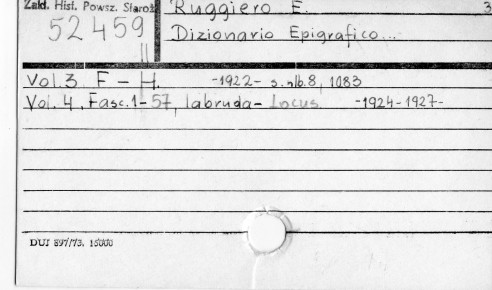 Zakł. Hist. Powsz. Staroż
52 459
II
Ruggiero E. 3
Dizionario Epigrafico...
Vol. 3. F - H. -1922- s. nlb. 8, 1083
Vol. 4, Fasc. 1-57, labruda - Locus -1924-1927-
DUJ 897/73. 15000